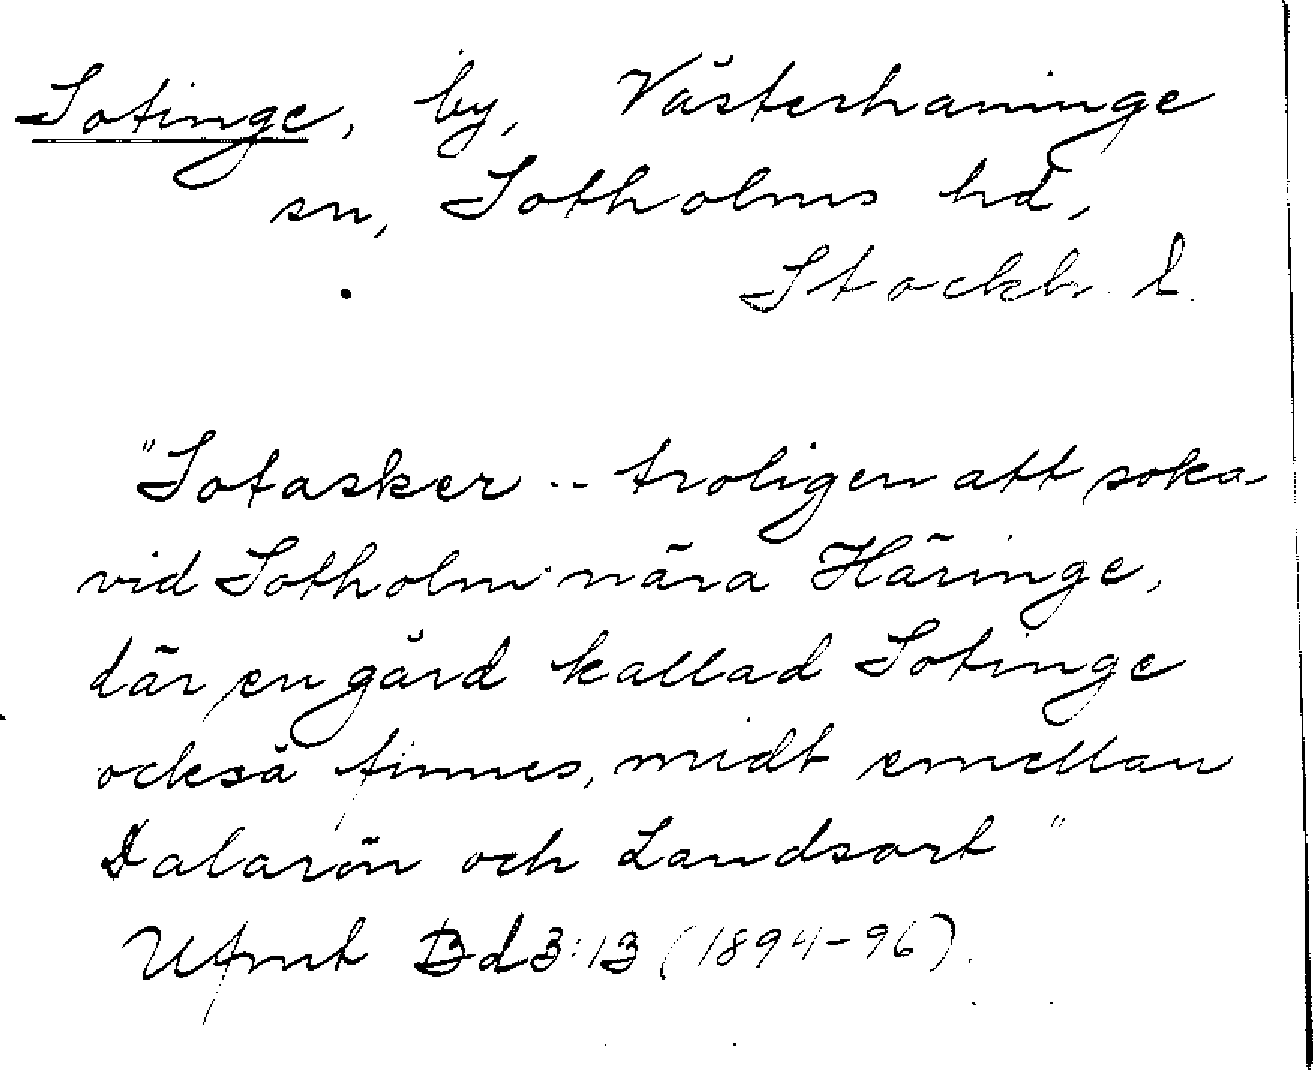 Sotinge, by, Västerhaninge
sn, Sotholms hd,
Stockh. l.
"Sotasker .. troligen att söka
vid Sotholm nära Häringe,
där en gård kallad Sotinge
också finnes, midt emellan
Dalarön och Landsort"
Ufmt Bd 3:13 (1894-96).